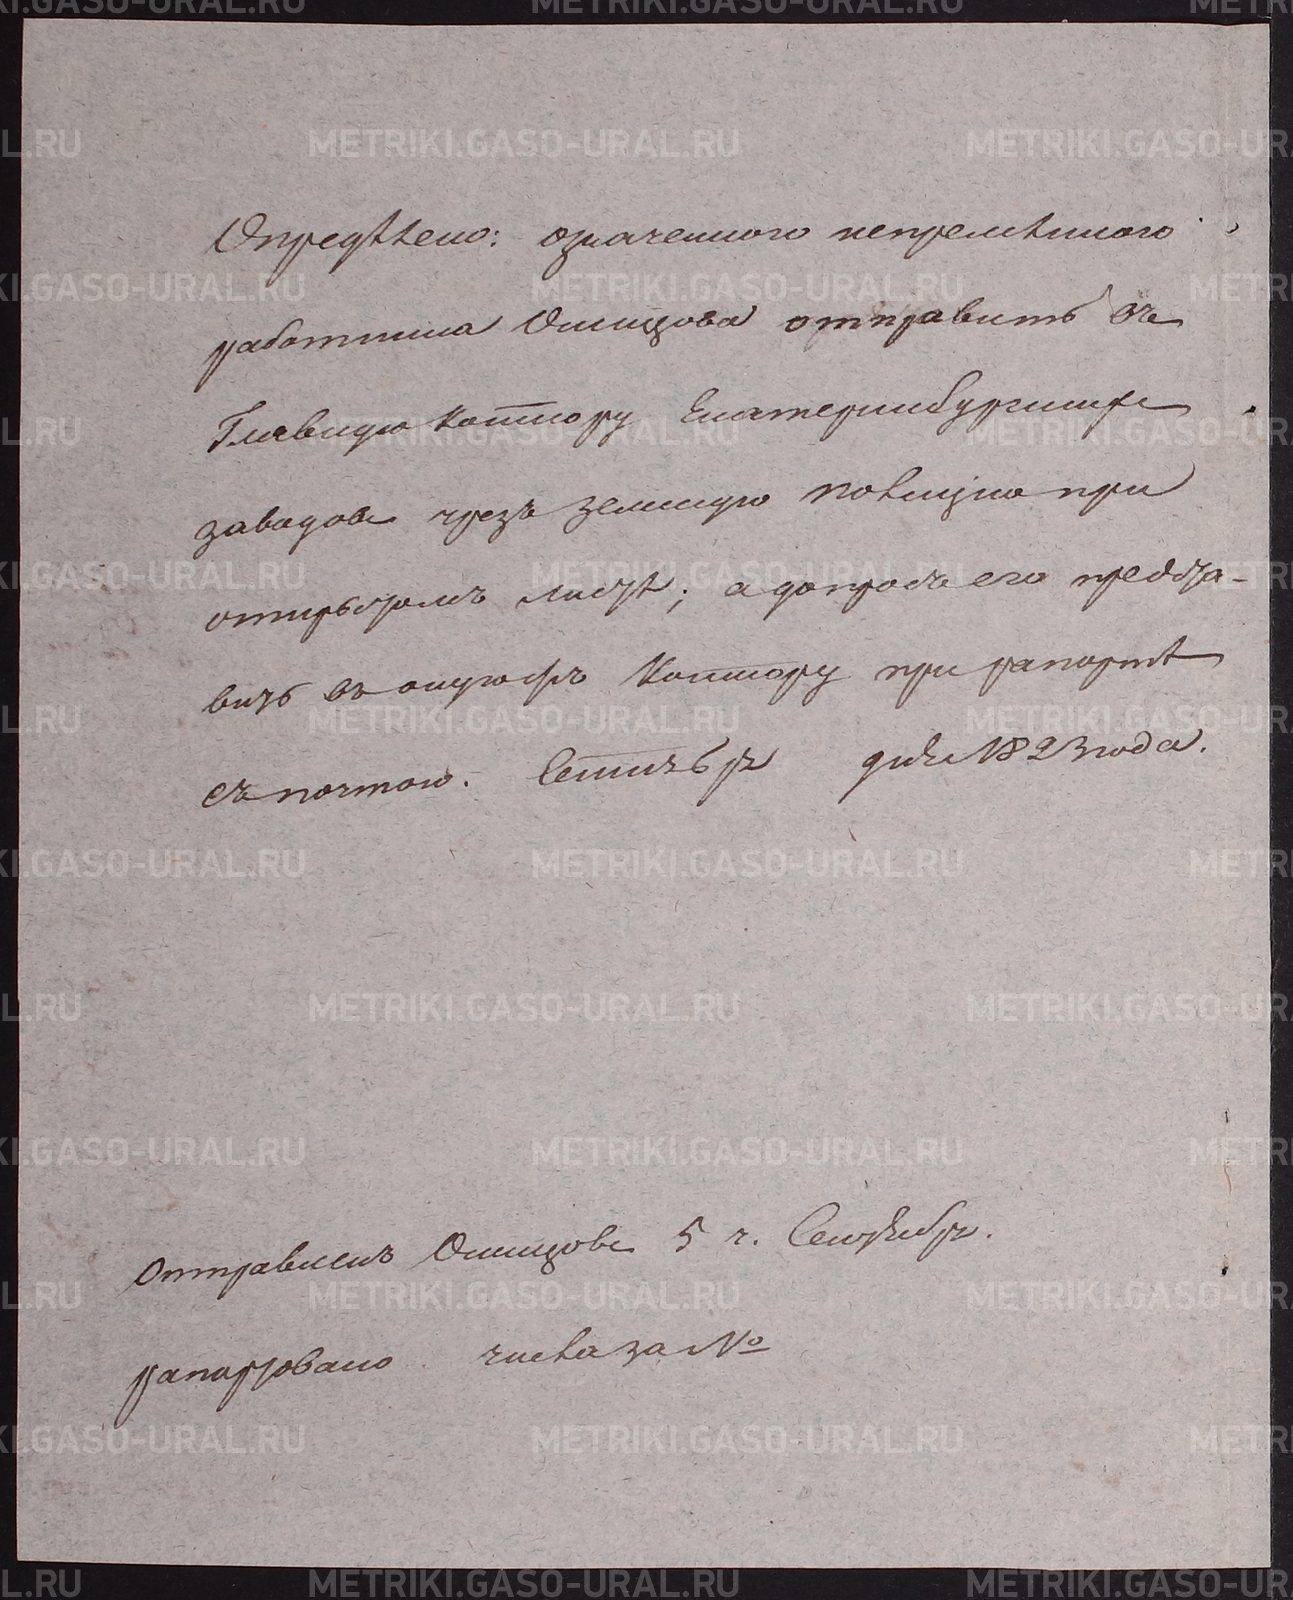 Опредѣлено: означеннаго непремѣннаго
работника отправить въ
Главную Контору Екатеринбургскихъ
заводовъ чрезъ земскую полицію при
открытомъ листѣ; а допросъ его предста-
вить въ ону жъ Контору при рапортѣ
съ почтою. Сентября дня 1823 года.
Отправленъ 5 ч. Сентября.
рапортовано числа за №